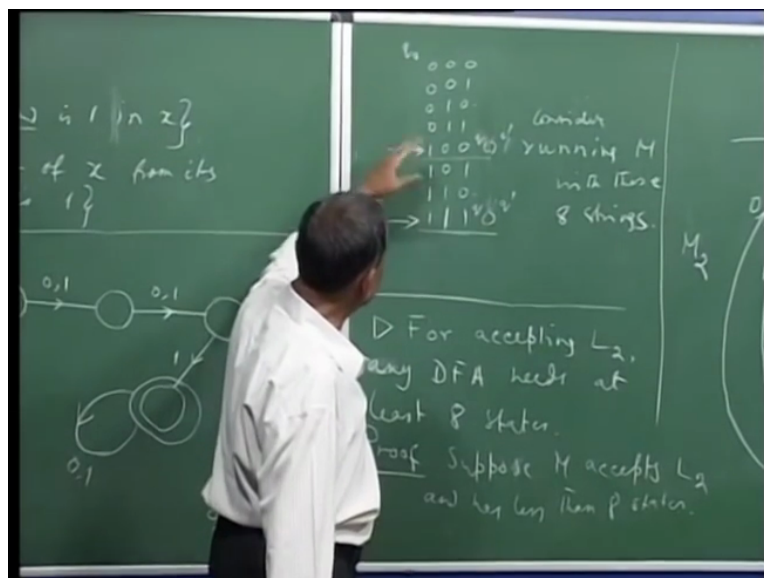 is 1 in x}
of x from its
1}
0,1
0,1
1
0,1
q₀
0 0 0
0 0 1
0 1 0
0 1 1
1 0 0 q 0 q'
1 0 1
1 1 0
1 1 1 q 0 q'
Consider
running M
with these
8 strings.
▷ For accepting L₂,
any DFA needs at
least 8 states.
Proof Suppose M accepts L₂
and has less than 8 states.
M₂
0